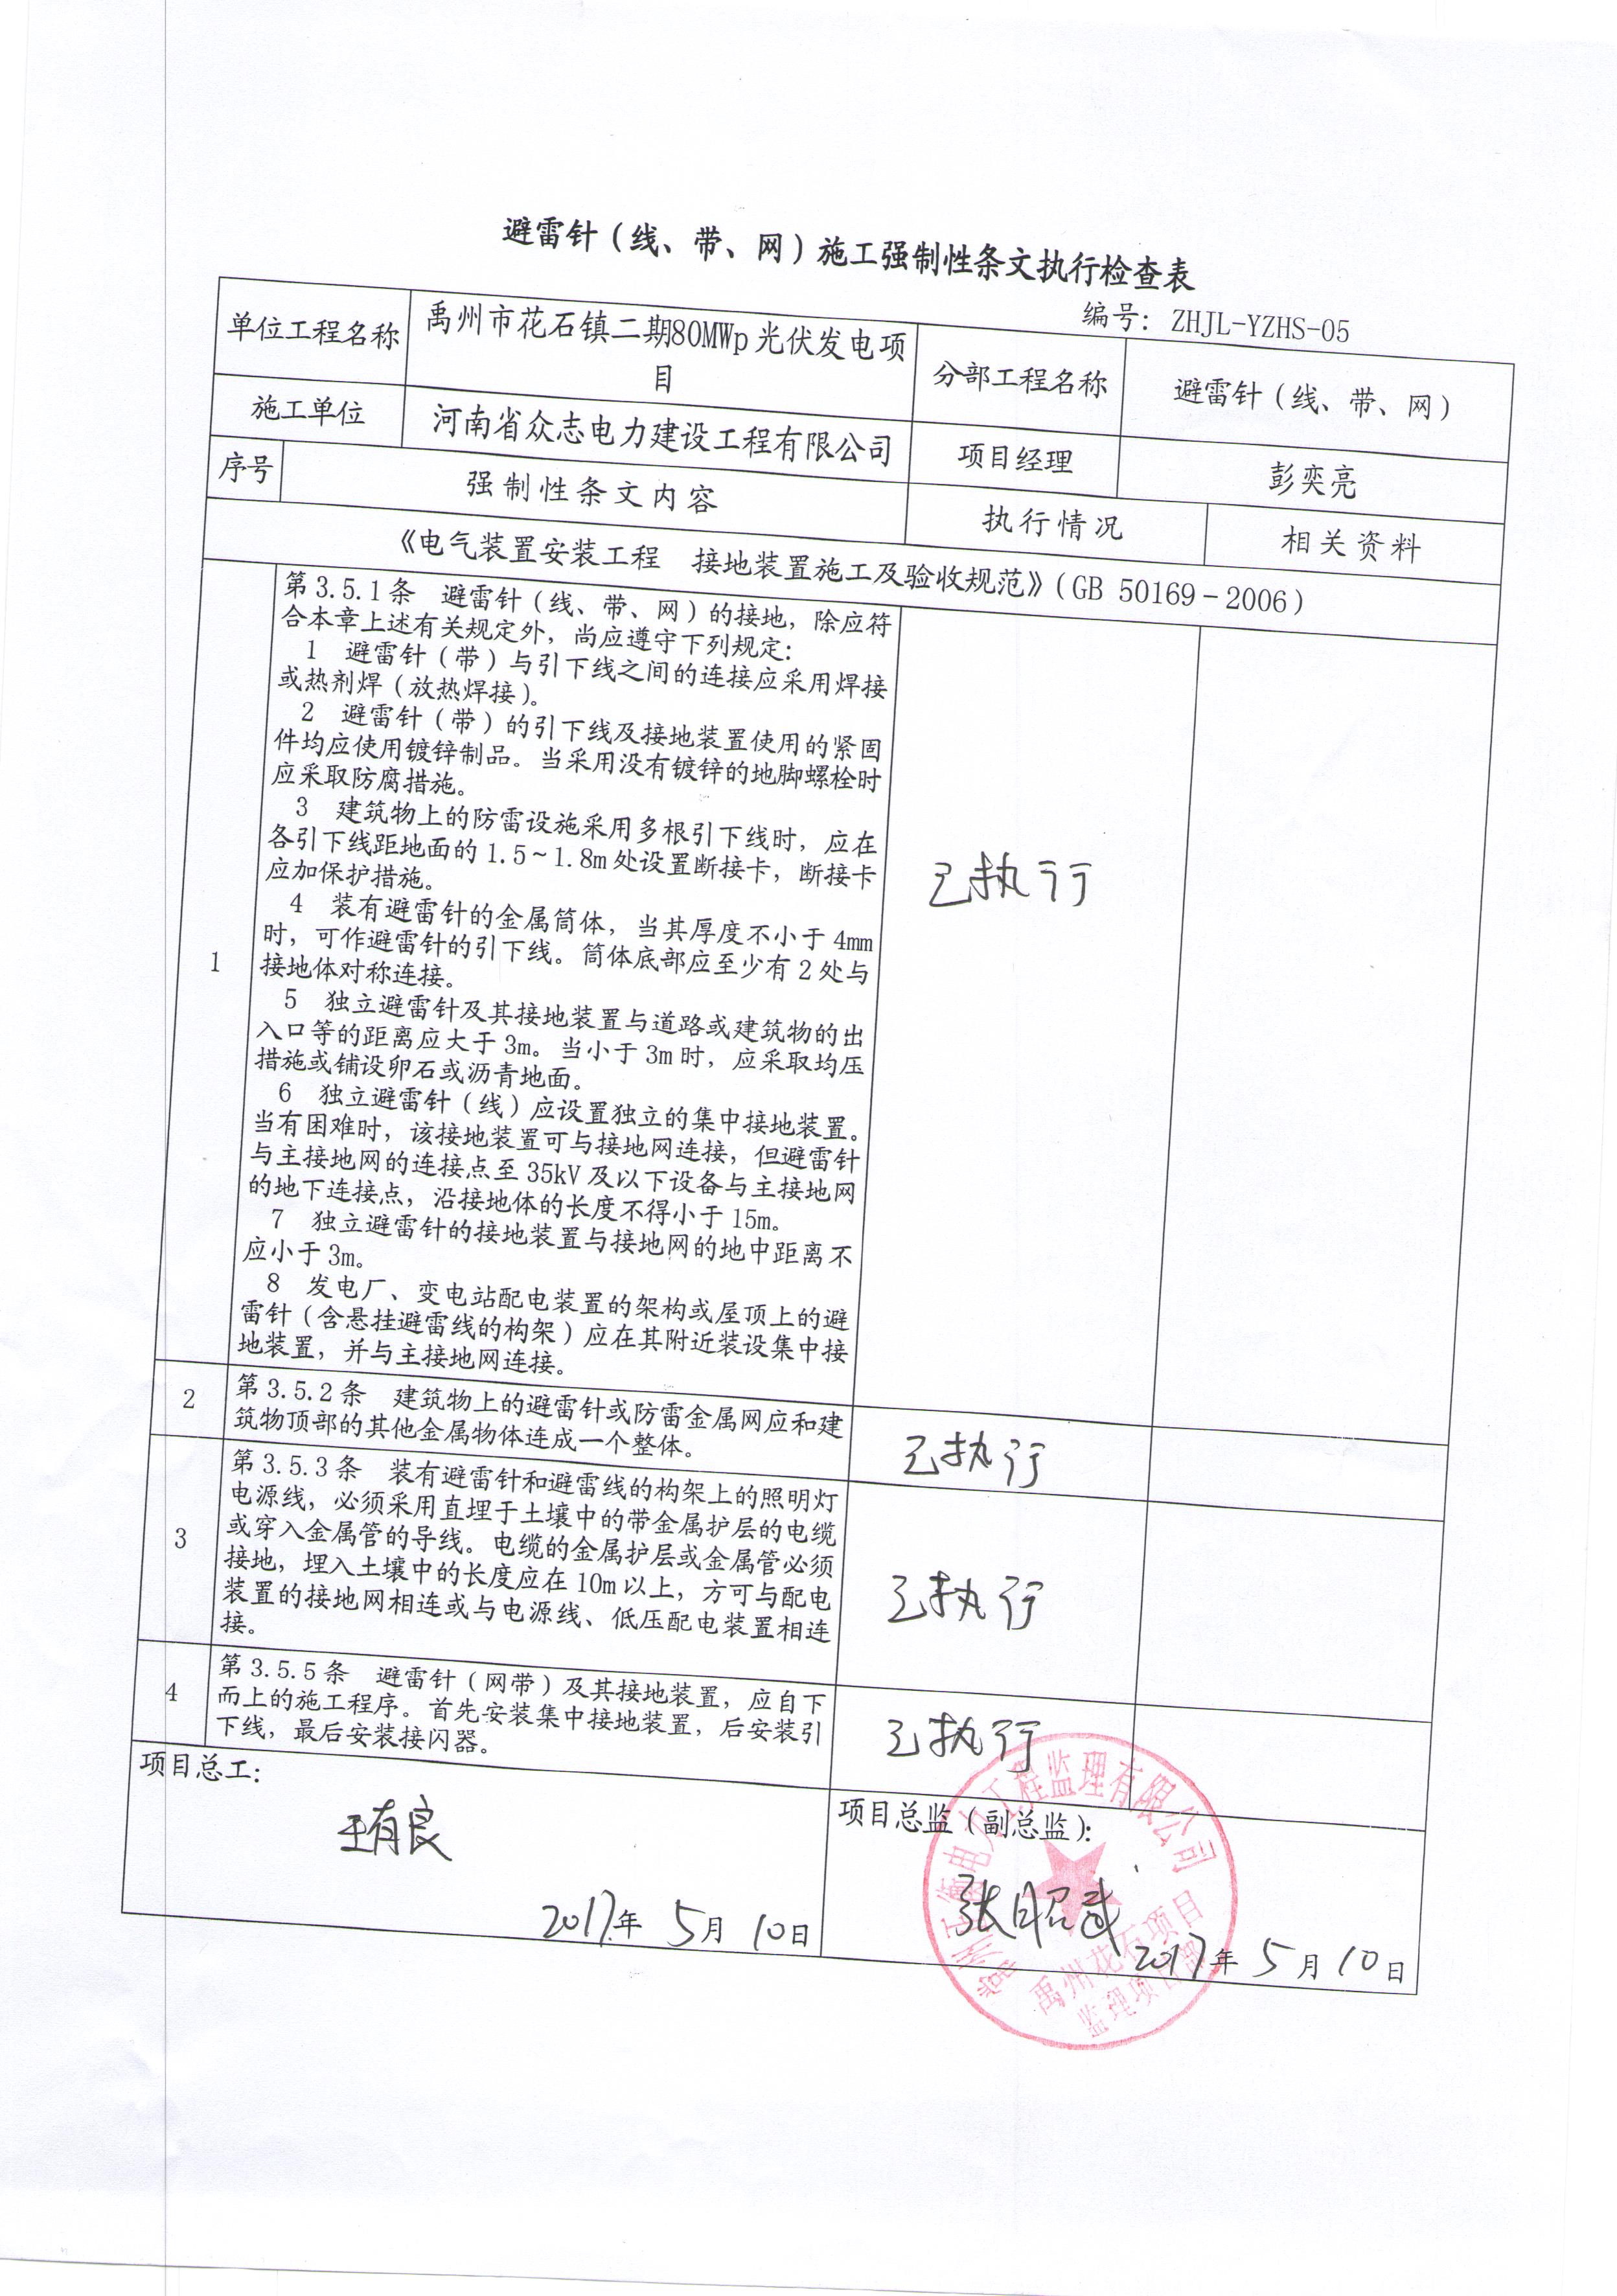 避雷针（线、带、网）施工强制性条文执行检查表
编号：ZHJL-YZHS-05
单位工程名称
禹州市花石镇二期80MWp光伏发电项
目
分部工程名称
避雷针（线、带、网）
施工单位
河南省众志电力建设工程有限公司
项目经理
彭奕亮
序号
强制性条文内容
执行情况
相关资料
《电气装置安装工程　接地装置施工及验收规范》（GB 50169－2006）
1
第3.5.1条　避雷针（线、带、网）的接地，除应符
合本章上述有关规定外，尚应遵守下列规定：
1　避雷针（带）与引下线之间的连接应采用焊接
或热剂焊（放热焊接）。
2　避雷针（带）的引下线及接地装置使用的紧固
件均应使用镀锌制品。当采用没有镀锌的地脚螺栓时
应采取防腐措施。
3　建筑物上的防雷设施采用多根引下线时，应在
各引下线距地面的1.5～1.8m处设置断接卡，断接卡
应加保护措施。
4　装有避雷针的金属筒体，当其厚度不小于4mm
时，可作避雷针的引下线。筒体底部应至少有2处与
接地体对称连接。
5　独立避雷针及其接地装置与道路或建筑物的出
入口等的距离应大于3m。当小于3m时，应采取均压
措施或铺设卵石或沥青地面。
6　独立避雷针（线）应设置独立的集中接地装置。
当有困难时，该接地装置可与接地网连接，但避雷针
与主接地网的连接点至35kV及以下设备与主接地网
的地下连接点，沿接地体的长度不得小于15m。
7　独立避雷针的接地装置与接地网的地中距离不
应小于3m。
8　发电厂、变电站配电装置的架构或屋顶上的避
雷针（含悬挂避雷线的构架）应在其附近装设集中接
地装置，并与主接地网连接。
已执行
2
第3.5.2条　建筑物上的避雷针或防雷金属网应和建
筑物顶部的其他金属物体连成一个整体。
已执行
3
第3.5.3条　装有避雷针和避雷线的构架上的照明灯
电源线，必须采用直埋于土壤中的带金属护层的电缆
或穿入金属管的导线。电缆的金属护层或金属管必须
接地，埋入土壤中的长度应在10m以上，方可与配电
装置的接地网相连或与电源线、低压配电装置相连
接。
已执行
4
第3.5.5条　避雷针（网带）及其接地装置，应自下
而上的施工程序。首先安装集中接地装置，后安装引
下线，最后安装接闪器。
已执行
项目总工：
王有良
2017年 5月 10日
项目总监（副总监）：
2017年 5月 10日
电力工程监理有限公司
禹州花石项目
监理项目部